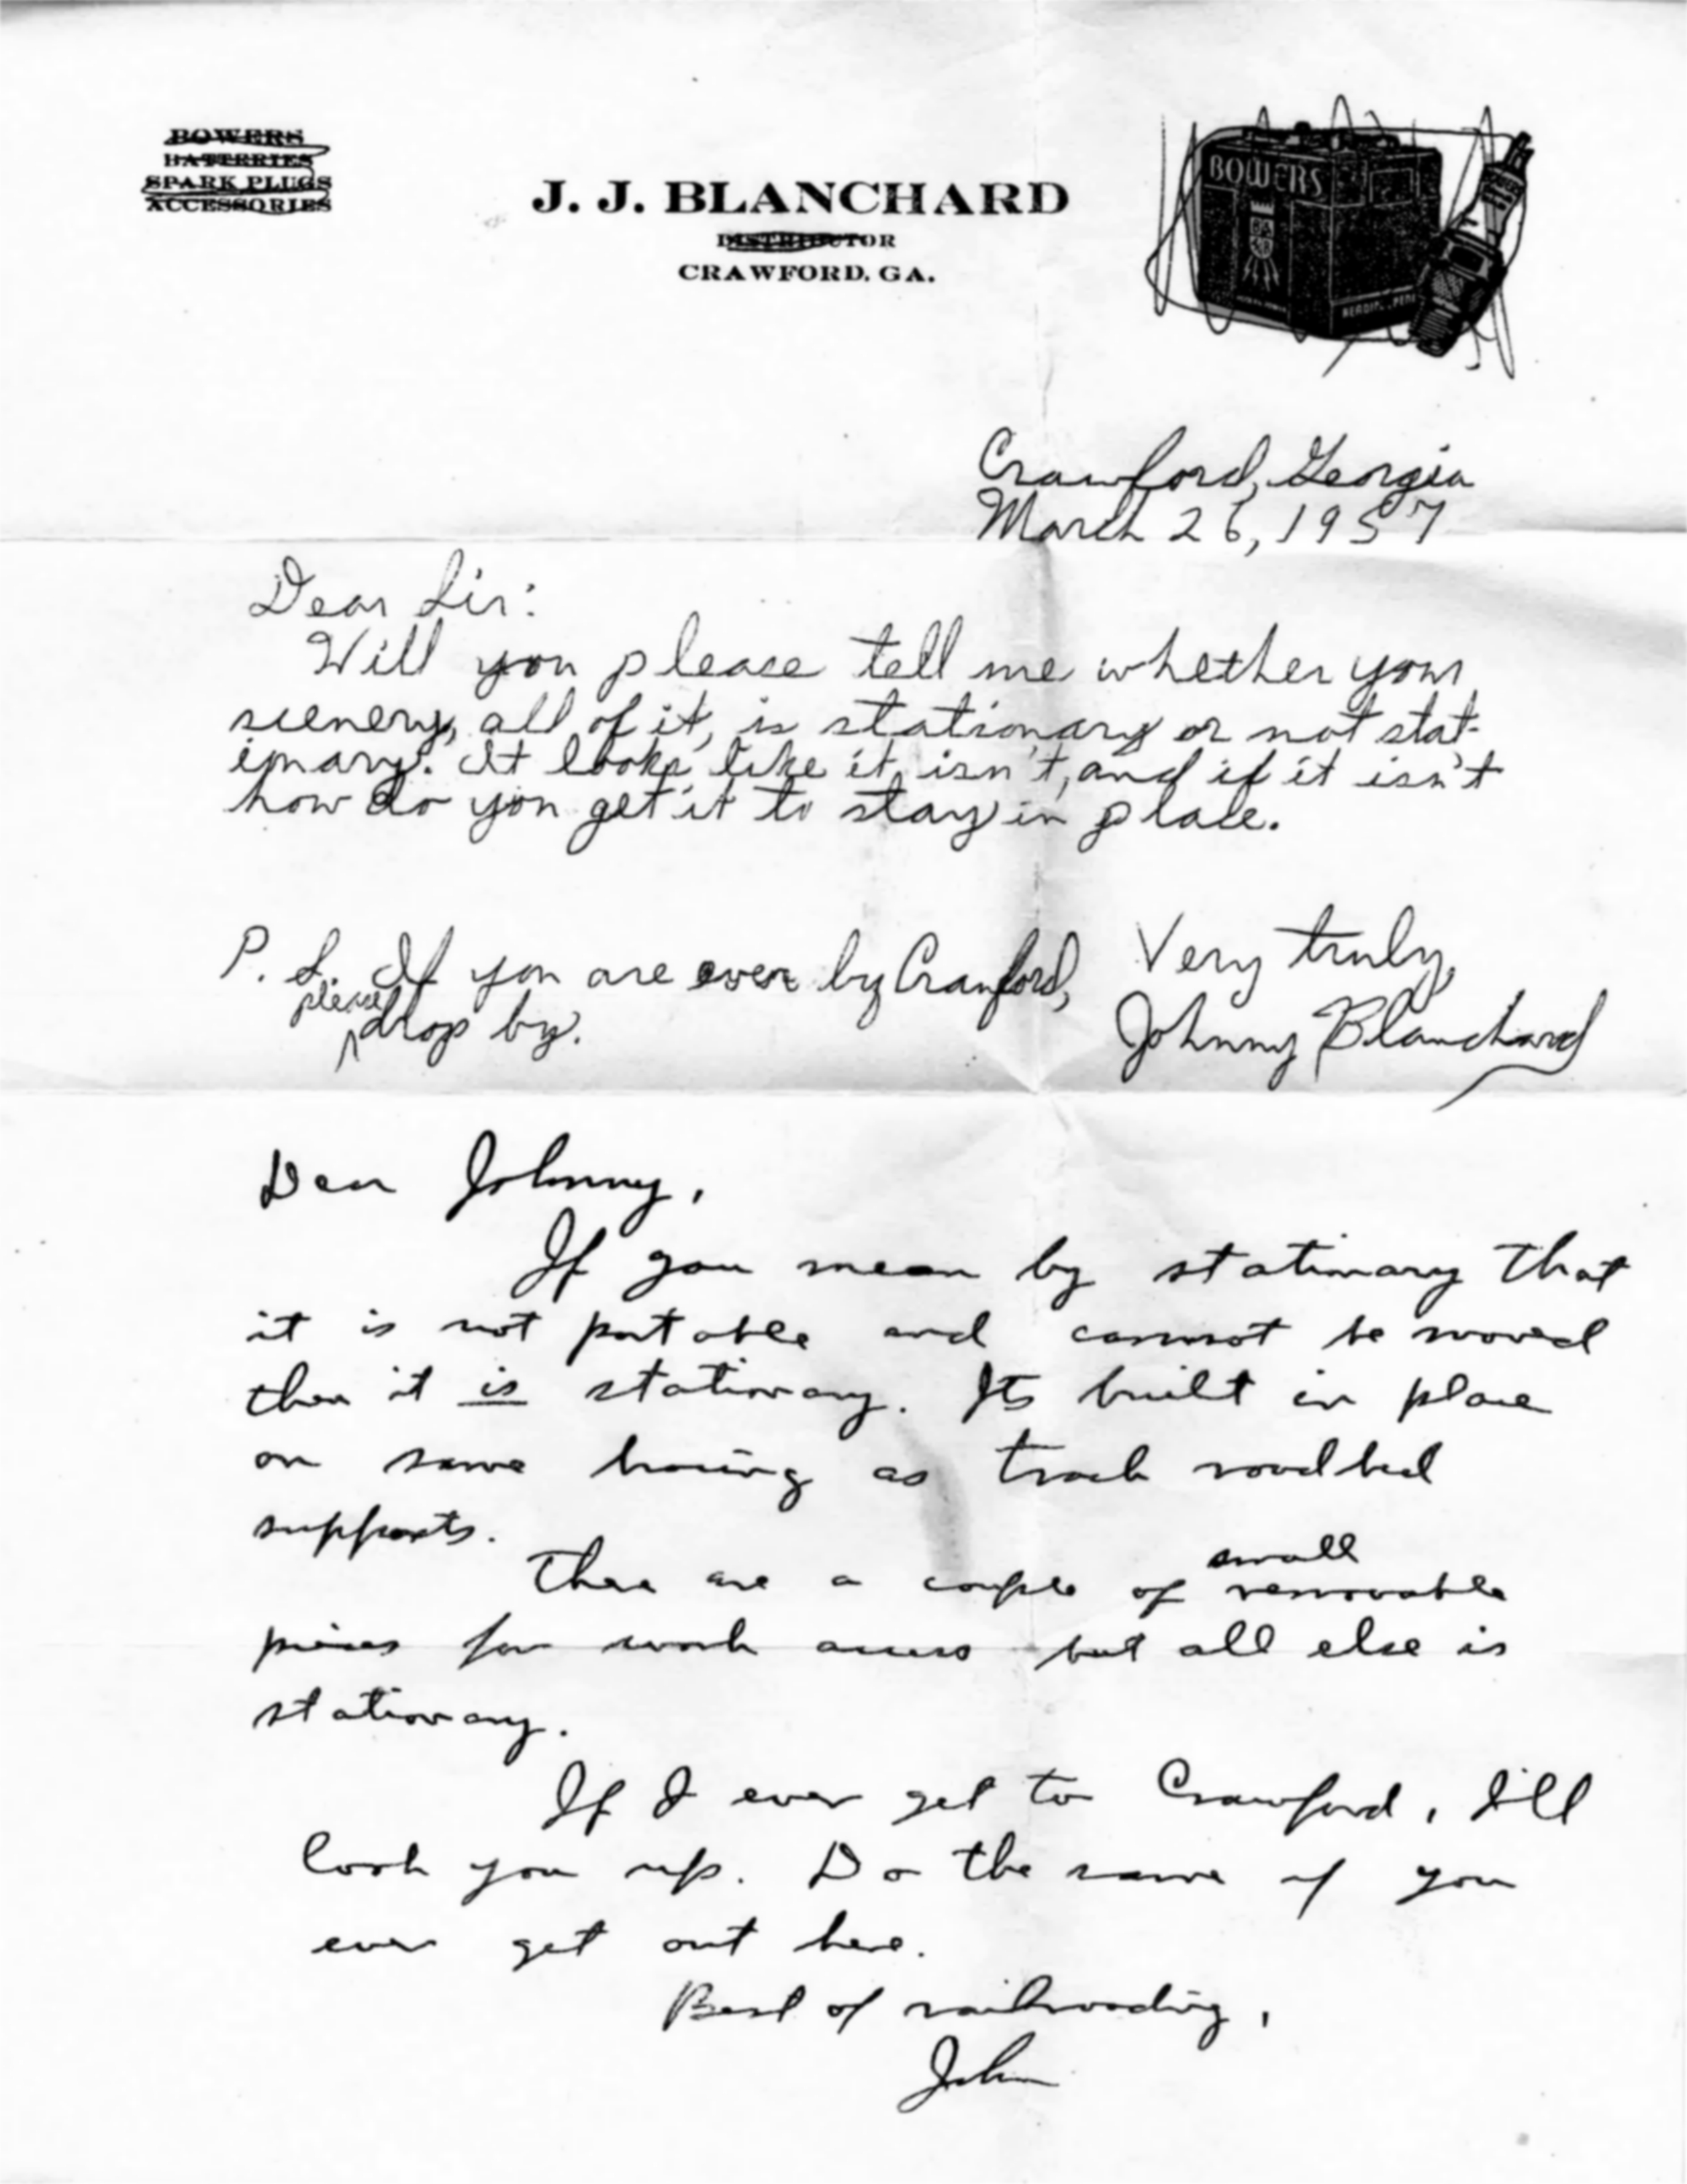 BOWERS
BATTERIES
SPARK PLUGS
ACCESSORIES
J. J. BLANCHARD
DISTRIBUTOR
CRAWFORD, GA.
BOWERS
READING, PENN
Crawford, Georgia
March 26, 1957
Dear Sir:
Will you please tell me whether your
scenery, all of it, is stationary or not stat-
ionary. It looks like it isn't, and if it isn't
how do you get it to stay in place.
Very truly,
Johnny Blanchard
P. S. If you are ever by Crawford,
please drop by.
Dear Johnny,
If you mean by stationary that
it is not portable and cannot be moved
then it is stationary. Its built in place
on same bracing as track roadbed
supports.
There are a couple of small removable
pieces for work access but all else is
stationary.
If I ever get to Crawford, I'll
look you up. Do the same if you
ever get out here.
Best of railroading,
John